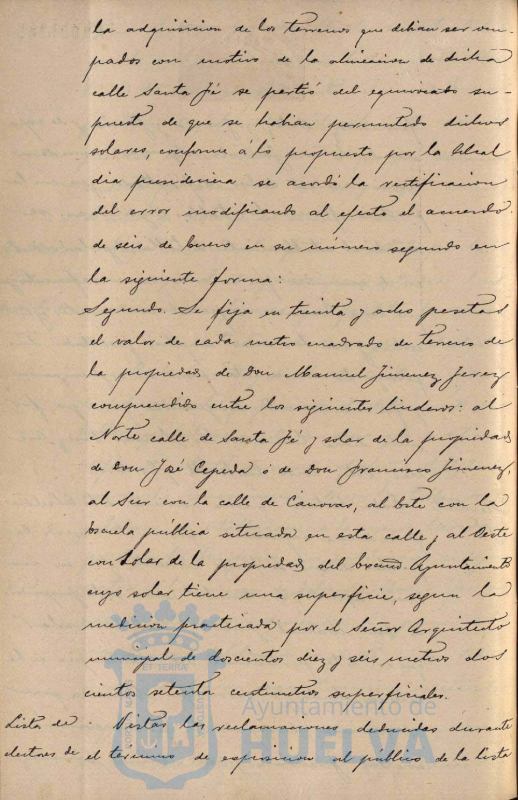 la adquisicion de los terrenos que debian ser ocu-
pados con motivo de la alineacion de dicha
calle Santa Fé se partió del equivocado su-
puesto de que se habian permutado dichos
solares, conforme á lo propuesto por la Alcal
dia presidencia se acordó la rectificacion
del error modificando al efecto el acuerdo
de seis de Enero en su número segundo en
la siguiente forma:
Segundo. Se fija en treinta y ocho pesetas
el valor de cada metro cuadrado de terreno de
la propiedad de Don Manuel Jimenez Jerez
comprendido entre los siguientes linderos: al
Norte calle de Santa Fé y solar de la propiedad
de Don José Cepeda ó de Don Francisco Jimenez,
al Sur con la calle de Canovas, al Este con la
Escuela pública situada en esta calle y al Oeste
con Solar de la propiedad del Excmo Ayuntamiento
cuyo solar tiene una superficie, segun la
medicion practicada por el Señor Arquitecto
municipal de doscientos diez y seis metros dos
cientos setenta centimetros superficiales.
Lista de Vistas las reclamaciones deducidas durante
electores de el termino de exposicion al público de la Lista
Ayuntamiento de
HUELVA